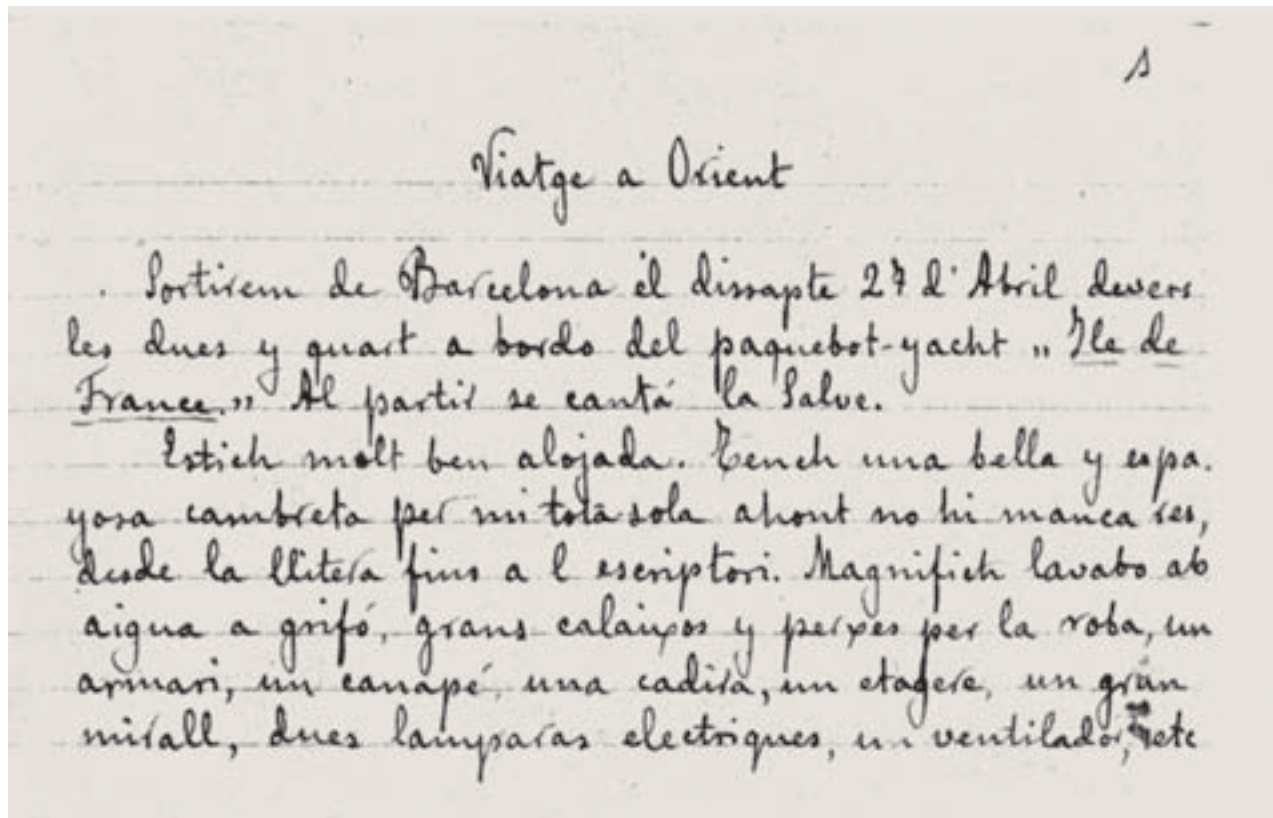 1
Viatge a Orient
Sortirem de Barcelona el dissapte 27 d'Abril devers
les dues y quart a bordo del paquebot-yacht „Ile de
France.” Al partir se cantá la Salve.
Estich molt ben alojada. Tench una bella y espa-
yosa cambreta per mi tota sola ahont no hi manca res,
desde la llitera fins a l escriptori. Magnifich lavabo ab
aigua a grifó, grans calaixos y perxes per la roba, un
armari, un canapé, una cadira, un etagere, un gran
mirall, dues lamparas electriques, un ventilador, etc